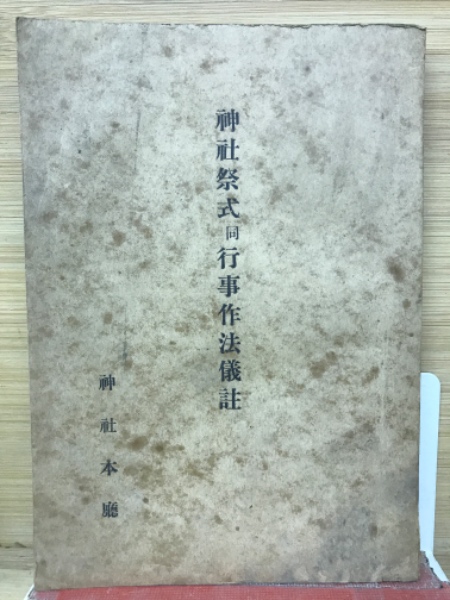 神社祭式同行事作法儀註
神社本廳